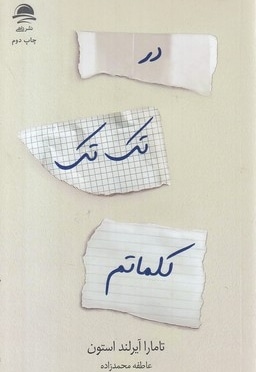 چاپ دوم
در
تک تک
کلماتم
تامارا آیرلند استون
عاطفه محمدزاده